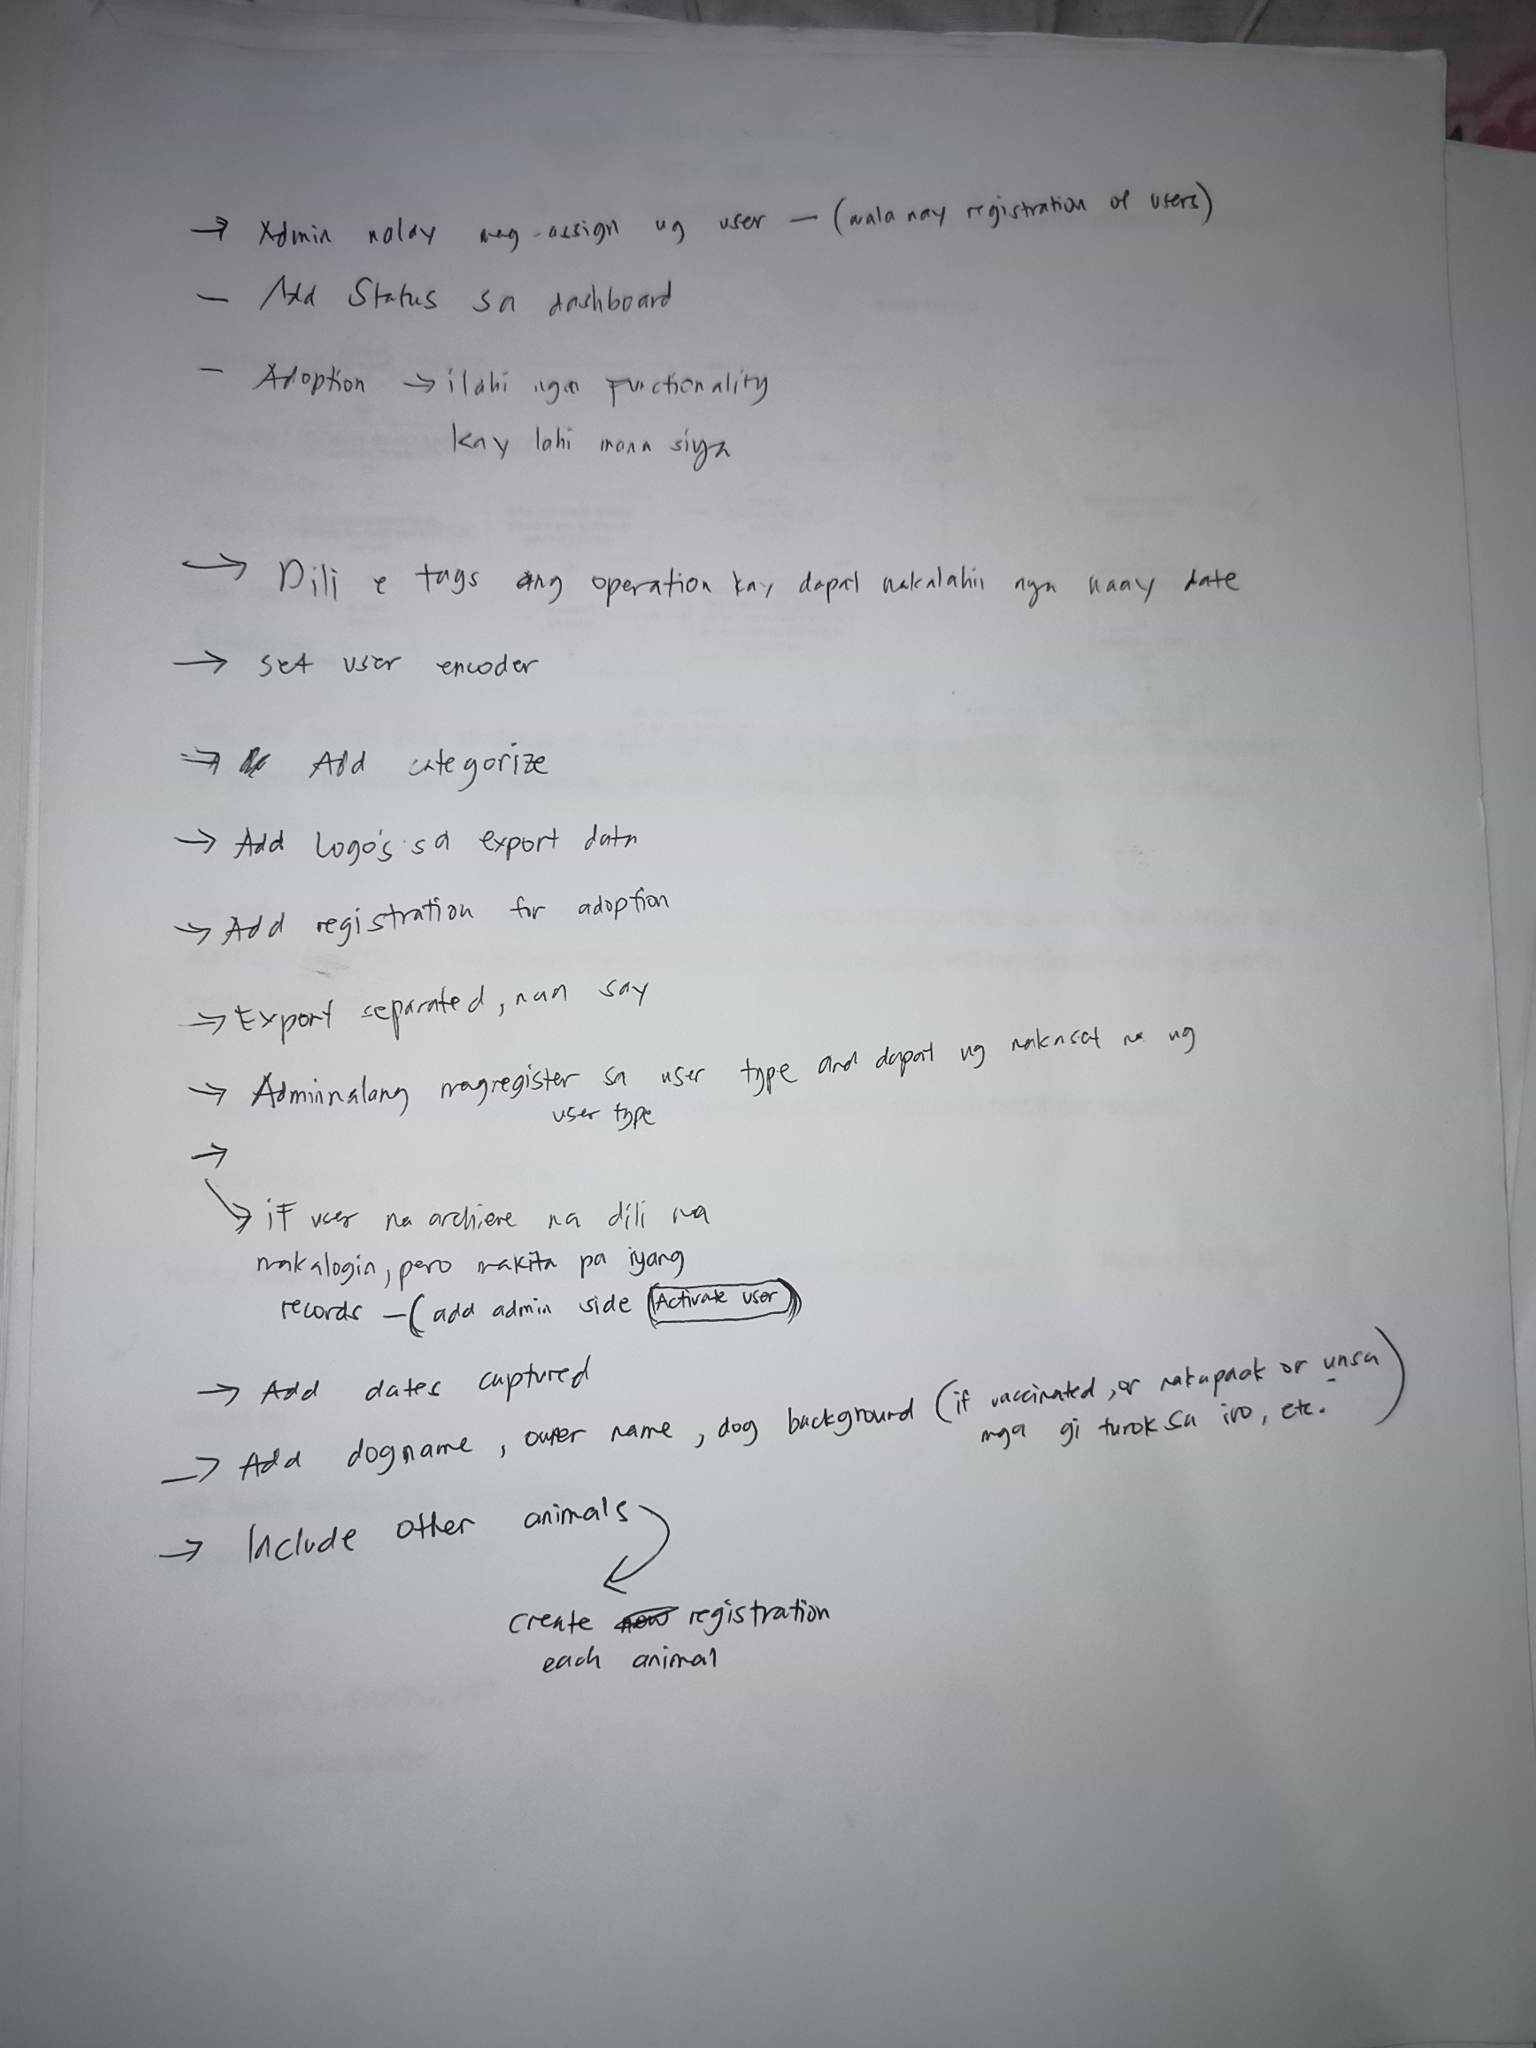 → Admin nalay mag-assign ug user — (wala nay registration of users)
— Add Status sa dashboard
— Adoption → ilahi ngan functionality
kay lahi mana siya
→ Dili e tags ang operation kay dapat nakalahi nga naay date
→ set user encoder
→ Add categorize
→ Add Logo's sa export data
→ Add registration for adoption
→ Export separated, naa say
→ Adminnalang magregister sa user type and dapat ug nakaset na ug
user type
→
→ if user na archieve na dili na
makalogin, pero makita pa iyang
records — (add admin side Activate user)
→ Add dates captured
→ Add dogname, owner name, dog background (if vaccinated, or nakapaak or unsa
mga gi turok sa iro, etc.)
→ Include other animals
create registration
each animal